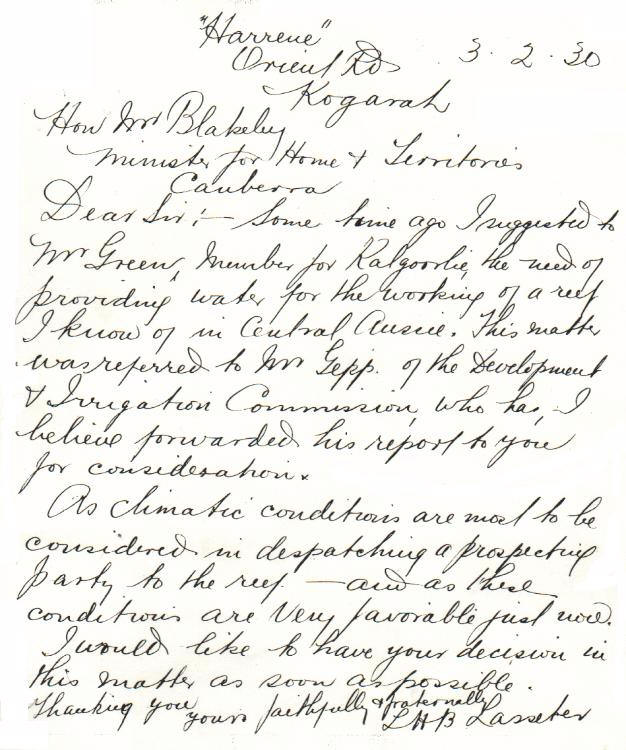 "Harrene"
Orient Rd 3.2.30
Kogarah
Hon Mr Blakeley
Minister for Home & Territories
Canberra
Dear Sir:— Some time ago I suggested to
Mr Green, Member for Kalgoorlie, the need of
providing water for the working of a reef
I know of in Central Aussie. This matter
was referred to Mr Gepp. of the Development
& Irrigation Commission, who has, I
believe forwarded his report to you
for consideration.
As climatic conditions are most to be
considered in despatching a prospecting
party to the reef — and as these
conditions are very favorable just now.
I would like to have your decision in
this matter as soon as possible.
Thanking you
yours faithfully & fraternally
LHB Lasseter